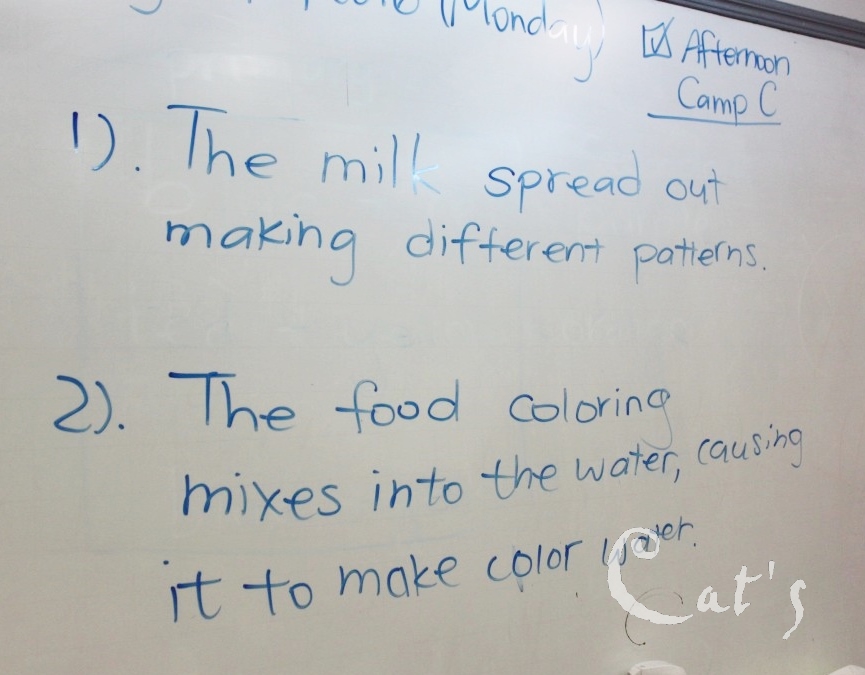 (Monday)
☑ Afternoon
Camp C
1). The milk spread out
making different patterns.
2). The food coloring
mixes into the water, causing
it to make color water.
Cat's